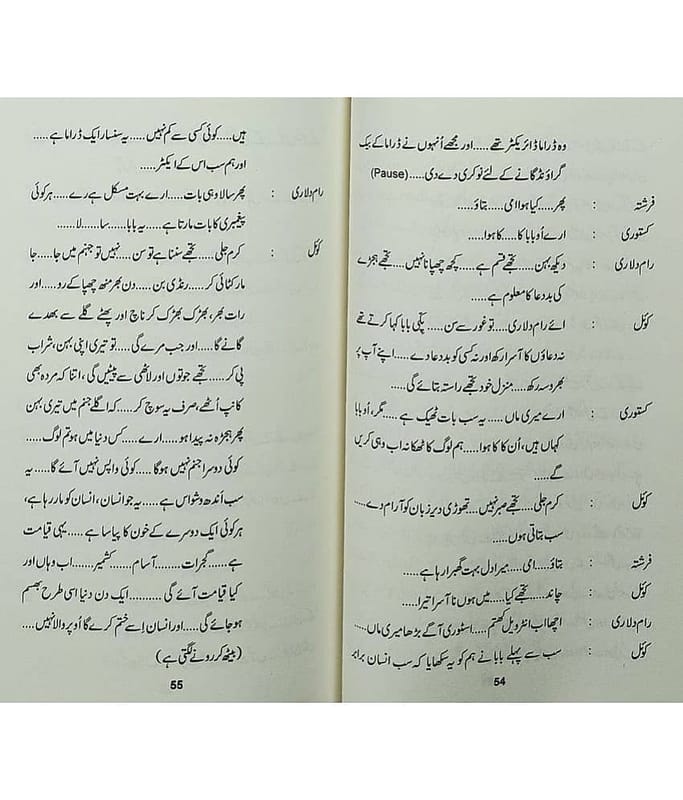 وہ ڈراما ڈائریکٹر تھے.....اور مجھے اُنہوں نے ڈراما کے بیک
گراؤنڈ گانے کے لئے نوکری دے دی.....(Pause)
فرشتہ : پھر.....کیا ہوا امی.....بتاؤ.....
کستوری : ارے اُو بابا کا.....کا ہوا.....
رام دلاری : دیکھ بہن.....تجھے قسم ہے.....کچھ چھپانا نہیں.....تجھے ہجڑے
کی بددعا کا معلوم ہے.....
کوئل : ائے رام دلاری.....تو غور سے سن.....پکّی بابا کہا کرتے تھے
نہ دعاؤں کا آسرا رکھ اور نہ کسی کو بددعا دے.....اپنے آپ پر
بھروسہ رکھ.....منزل خود تجھے راستہ بتائے گی.....
کستوری : ارے میری ماں.....یہ سب بات ٹھیک ہے.....مگر، اُو بابا
کہاں ہیں، اُن کا کا ہوا.....ہم لوگ کا ٹھکانہ اب وہی کریں
گے.....
کوئل : کرم جلی.....تجھے صبر نہیں.....تھوڑی دیر زبان کو آرام دے.....
سب بتاتی ہوں.....
فرشتہ : بتاؤ.....امی.....میرا دل بہت گھبرا رہا ہے.....
کوئل : چاند.....تجھے کیا.....میں ہوں نا آسرا تیرا.....
رام دلاری : اچھا اب انٹرویل کھتم.....اسٹوری آگے بڑھا میری ماں.....
کوئل : سب سے پہلے بابا نے ہم کو یہ سکھایا کہ سب انسان برابر
54
ہیں.....کوئی کسی سے کم نہیں.....یہ سنسار ایک ڈراما ہے.....
اور ہم سب اس کے ایکٹر.....
رام دلاری : پھر سالا وہی بات.....ارے بہت مسکل ہے رے.....ہر کوئی
پیغمبری کا بات مارتا ہے.....یہ بابا.....سا.....لا.....
کوئل : کرم جلی.....تجھے سننا ہے تو سن.....نہیں تو جہنم میں جا.....جا
مار کٹائی کر.....رنڈی بن.....دن بھر منھ چھپا کے رو.....اور
رات بھر، بھڑک بھڑک کر ناچ اور پھٹے گلے سے بھدے
گانے گا.....اور جب مرے گی.....تو تیری اپنی بہن، شراب
پی کر.....تجھے جوتوں اور لاٹھی سے پیٹیں گی، اتنا کہ مردہ بھی
کانپ اُٹھے، صرف یہ سوچ کر.....کہ اگلے جنم میں تیری بہن
پھر ہجڑہ نہ پیدا ہو.....ارے.....کس دنیا میں ہو تم لوگ.....
کوئی دوسرا جنم نہیں ہوگا.....کوئی واپس نہیں آئے گا.....یہ
سب اُندھ وشواس ہے.....یہ جو انسان، انسان کو مار رہا ہے،
ہر کوئی ایک دوسرے کے خون کا پیاسا ہے.....یہی قیامت
ہے.....گجرات.....آسام.....کشمیر.....اب وہاں اور
کیا قیامت آئے گی..........ایک دن دنیا اسی طرح بھسم
ہو جائے گی.....اور انسان اِسے ختم کرے گا اُوپر والا نہیں.....
(بیٹھ کر رونے لگتی ہے)
55